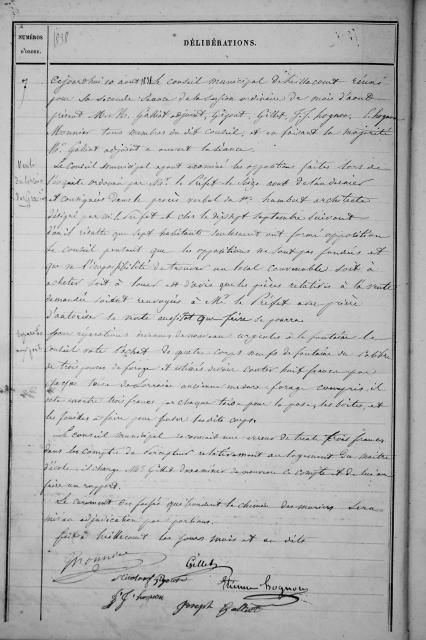 NUMÉROS D'ORDRE.
1838
DÉLIBÉRATIONS.
7
Cejourd'hui 10 aout 1838 le conseil municipal d'Heillecourt réuni
pour sa seconde séance de la session ordinaire du mois d'aout
présent Mrs N. Galliot adjoint, Gigout, Gillet, J. J. hognon, E. hognon
Mounier tous membres du dit conseil, et en faisant la majorité
Mr. Galliot adjoint a ouvert la séance.
Vente
Le Conseil Municipal ayant examiné les oppositions faites lors de
l'enquête ordonnée par Mr. le Préfet le seize aout de l'an dernier
et consignées dans le procès verbal de Mr. hambert architecte
désigné par Mr. le Préfet et clos le dix sept septembre suivant
d'où il résulte que sept habitants seulement ont formé opposition
Le conseil pensant que les oppositions ne sont pas fondées et
que vu l'impossibilité de trouver un local convenable soit à
acheter soit à louer est d'avis que les pièces relatives à la vente
demandée soient renvoyées à Mr. le Préfet avec prière
d'autoriser la vente aussitot que faire se pourra.
Des réparations devenues de nouveau urgentes à la fontaine le
conseil vote l'achat de quatre corps neufs de fontaine du calibre
de trois pouces de forage et estimés devoir couter huit francs par
chaque toise de Lorraine ancienne mesure forage compris, il
vote encore trois francs par chaque toise pour la pose, les boites, et
les fouilles à faire pour fixer lesdits corps.
Le conseil municipal reconnait une erreur de trente trois francs
dans les comptes du percepteur relativement au logement du maitre
d'école, il charge Mr. Gillet d'examiner de nouveau ce compte et de lui en
faire un rapport.
Le curement des fossés que bordent le chemin des muriers sera
mis en adjudication par portions.
fait à heillecourt les jours mois et an dits
Mounier
Gillet
Nicolas Gigout
Etienne hognon
J. J. hognon
Joseph Galliot